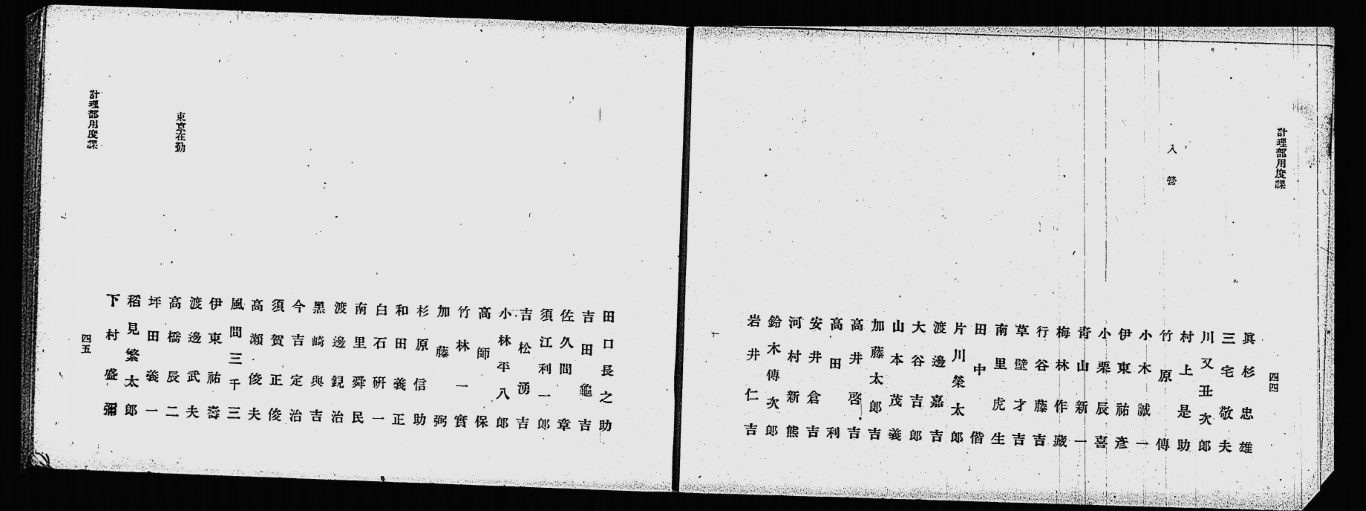 計理部用度課
四四
眞杉忠雄
三宅敬夫
川又丑次郎
村上是助
入營
竹原傳
小木誠一
伊東祐彦
小栗辰喜
青山新一
梅林作藏
行谷藤吉
草壁才吉
南里虎生
田中偕
片川榮太郎
渡邊嘉吉
大谷吉郎
山本茂義
加藤太郎吉
高井啓吉
高田利
安井倉吉
河村新熊
鈴木傳次郎
岩井仁吉
田口長之助
吉田龜吉
佐久間章
須江利一郎
吉松湧吉
小林平八郎
高師保
竹林一實
加藤弼
杉原信助
和田義正
白石硏一
南里舜民
渡邊銳治
黑崎與吉
今吉定治
須賀正俊
高瀨俊夫
風間三千三
伊東祐壽
東京在勤
渡邊武夫
高橋辰二
坪田義一
稻見繁太郎
下村盛彌
計理部用度課
四五